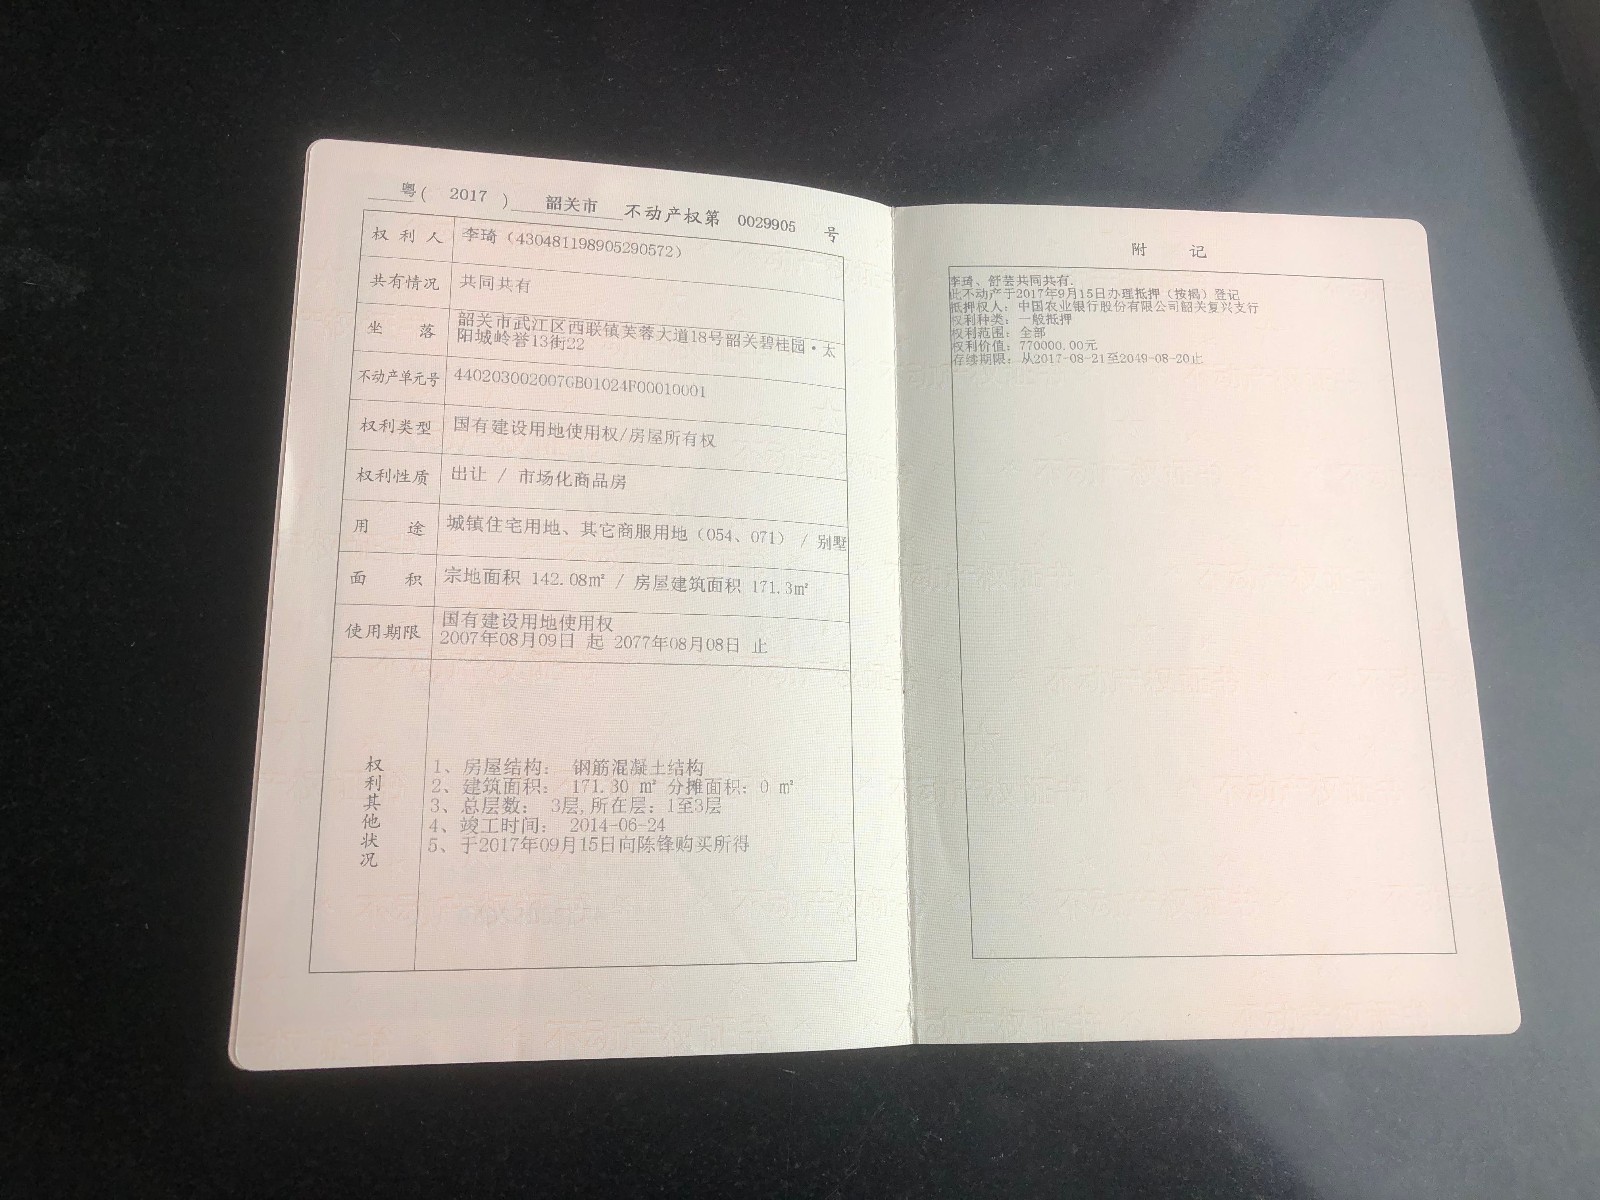 粤( 2017 ) 韶关市 不动产权第 0029905 号
权利人 李琦（430481198905290572）
共有情况 共同共有
坐落 韶关市武江区西联镇芙蓉大道18号韶关碧桂园·太
阳城岭誉13街22
不动产单元号 440203002007GB01024F00010001
权利类型 国有建设用地使用权/房屋所有权
权利性质 出让 / 市场化商品房
用途 城镇住宅用地、其它商服用地（054、071） / 别墅
面积 宗地面积 142.08㎡ / 房屋建筑面积 171.3㎡
使用期限 国有建设用地使用权
2007年08月09日 起 2077年08月08日 止
权利其他状况
1、房屋结构： 钢筋混凝土结构
2、建筑面积： 171.30 ㎡ 分摊面积：0 ㎡
3、总层数： 3层,所在层：1至3层
4、竣工时间： 2014-06-24
5、于2017年09月15日向陈锋购买所得
附记
李琦、舒芸共同共有.
此不动产于2017年9月15日办理抵押（按揭）登记
抵押权人：中国农业银行股份有限公司韶关复兴支行
权利种类：一般抵押
权利范围：全部
权利价值：770000.00元
存续期限：从2017-08-21至2049-08-20止